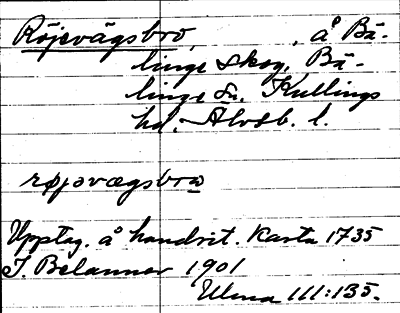 Röjevägsbro, , å Bä-
linge skog, Bä-
linge sn. Kullings
hd. Älvsb. l.
røjəvægsbroa
Upptag. å handrit. karta 1735
T. Belanner 1901
Ulma 111:135.